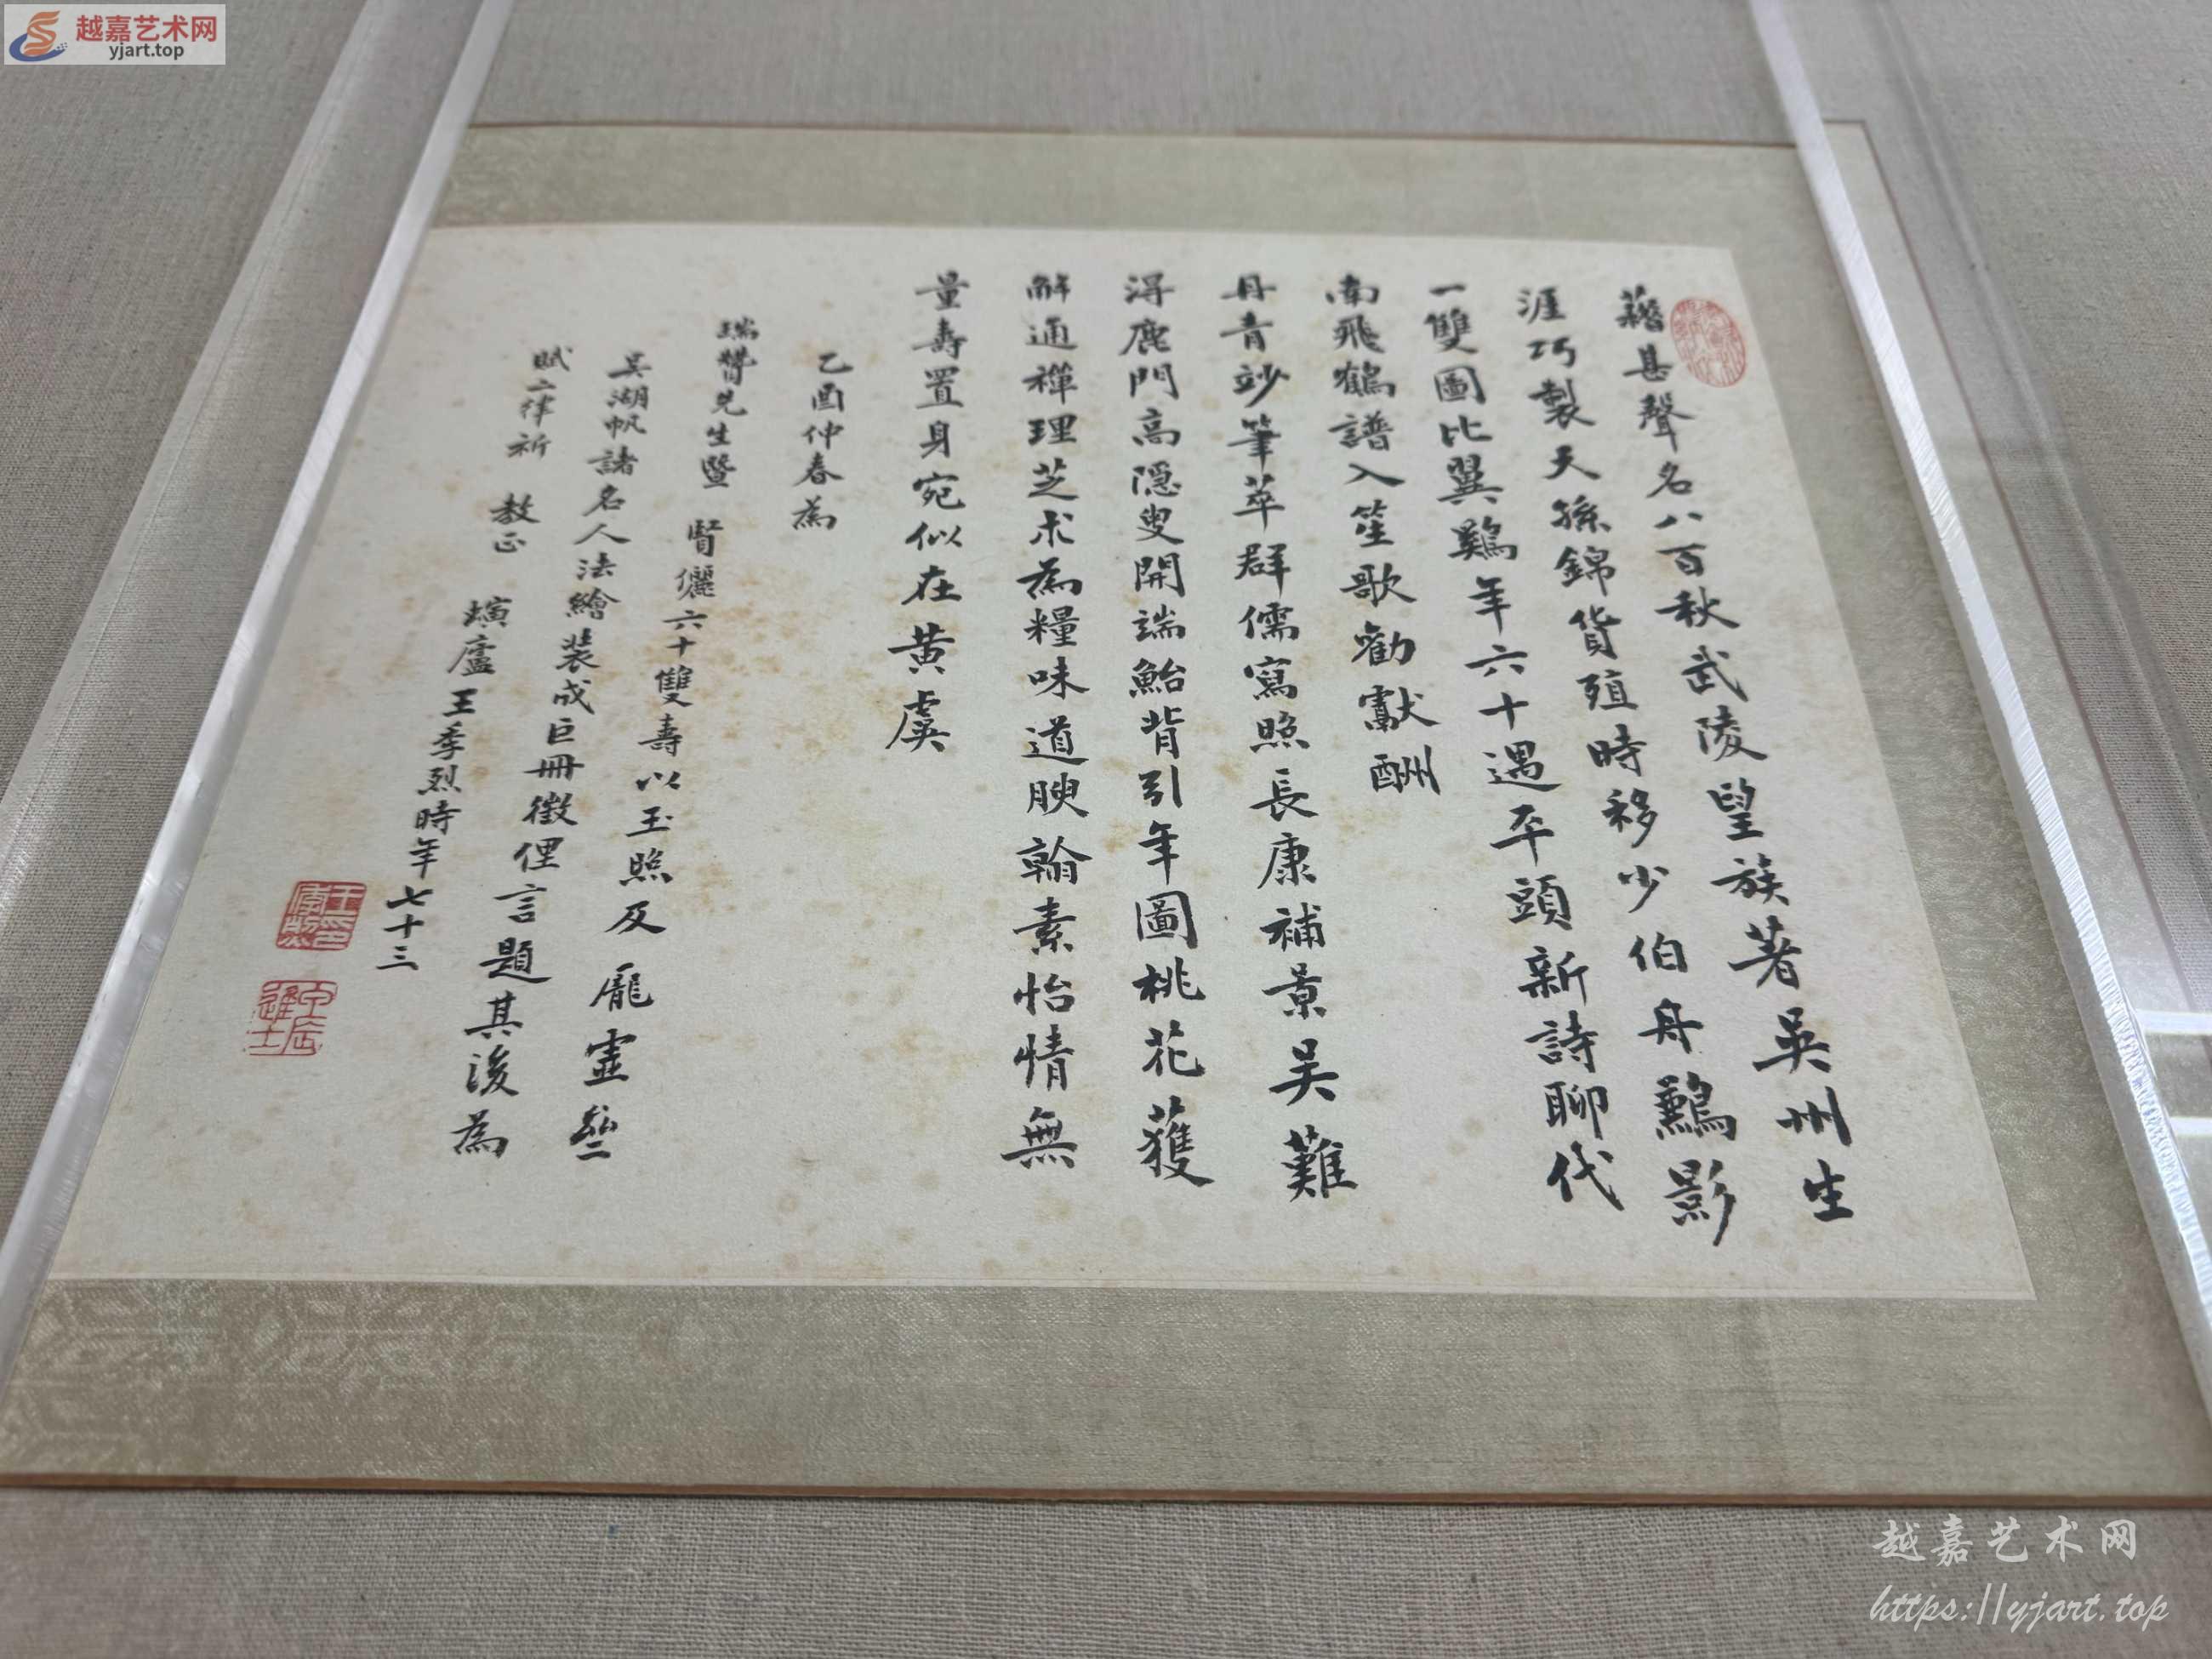 越嘉艺术网
yjart.top
藉甚聲名八百秋武陵望族著吳州生
涯巧製天孫錦貨殖時移少伯舟鶼影
一雙圖比翼鷄年六十遇平頭新詩聊代
南飛鶴譜入笙歌勸獻酬
丹青妙筆萃群儒寫照長康補景吴難
得鹿門高隱叟開端鮐背引年圖桃花獲
解通禪理芝术為糧味道腴翰素怡情無
量壽置身宛似在黄虞
乙酉仲春為
瑞贊先生暨 賢儷六十雙壽以玉照及 龐虛
吴湖帆諸名人法繪裝成巨冊徵俚言題其後為
賦二律祈 教正 螾廬王季烈時年七十三
王印季烈
甲辰進士
越嘉艺术网
https://yjart.top